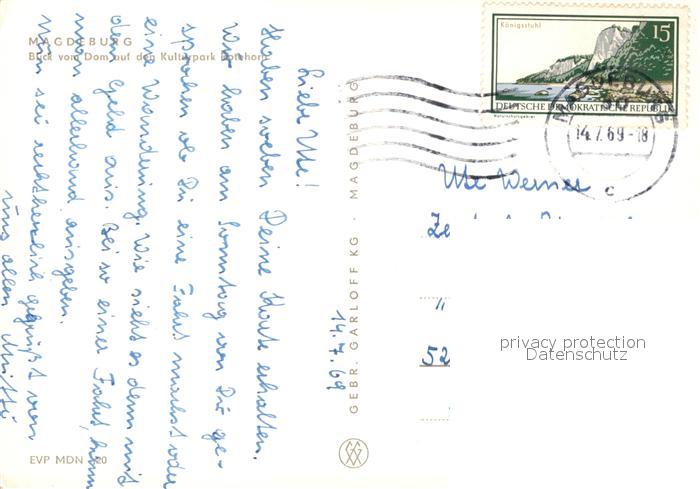 MAGDEBURG
Blick vom Dom auf den Kulturpark Rotehorn
14.7.69
Liebe Ute!
Haben soeben Deine Karte erhalten.
Wir haben am Sonntag von Dir ge-
sprochen ob Du eine Fahrt machst oder
eine Wanderung. Wie sieht es denn mit
dem Geld aus. Bei so einer Fahrt, kann
man allerhand ausgeben.
Nun sei recht herzlich gegrüßt von
uns allen Mutti
EVP MDN 0,20
GEBR. GARLOFF KG · MAGDEBURG
Königsstuhl
15
DEUTSCHE DEMOKRATISCHE REPUBLIK
Naturschutzgebiet
MAGDEBURG
14.7.69-18
c
Ute Werner
52
privacy protection
Datenschutz